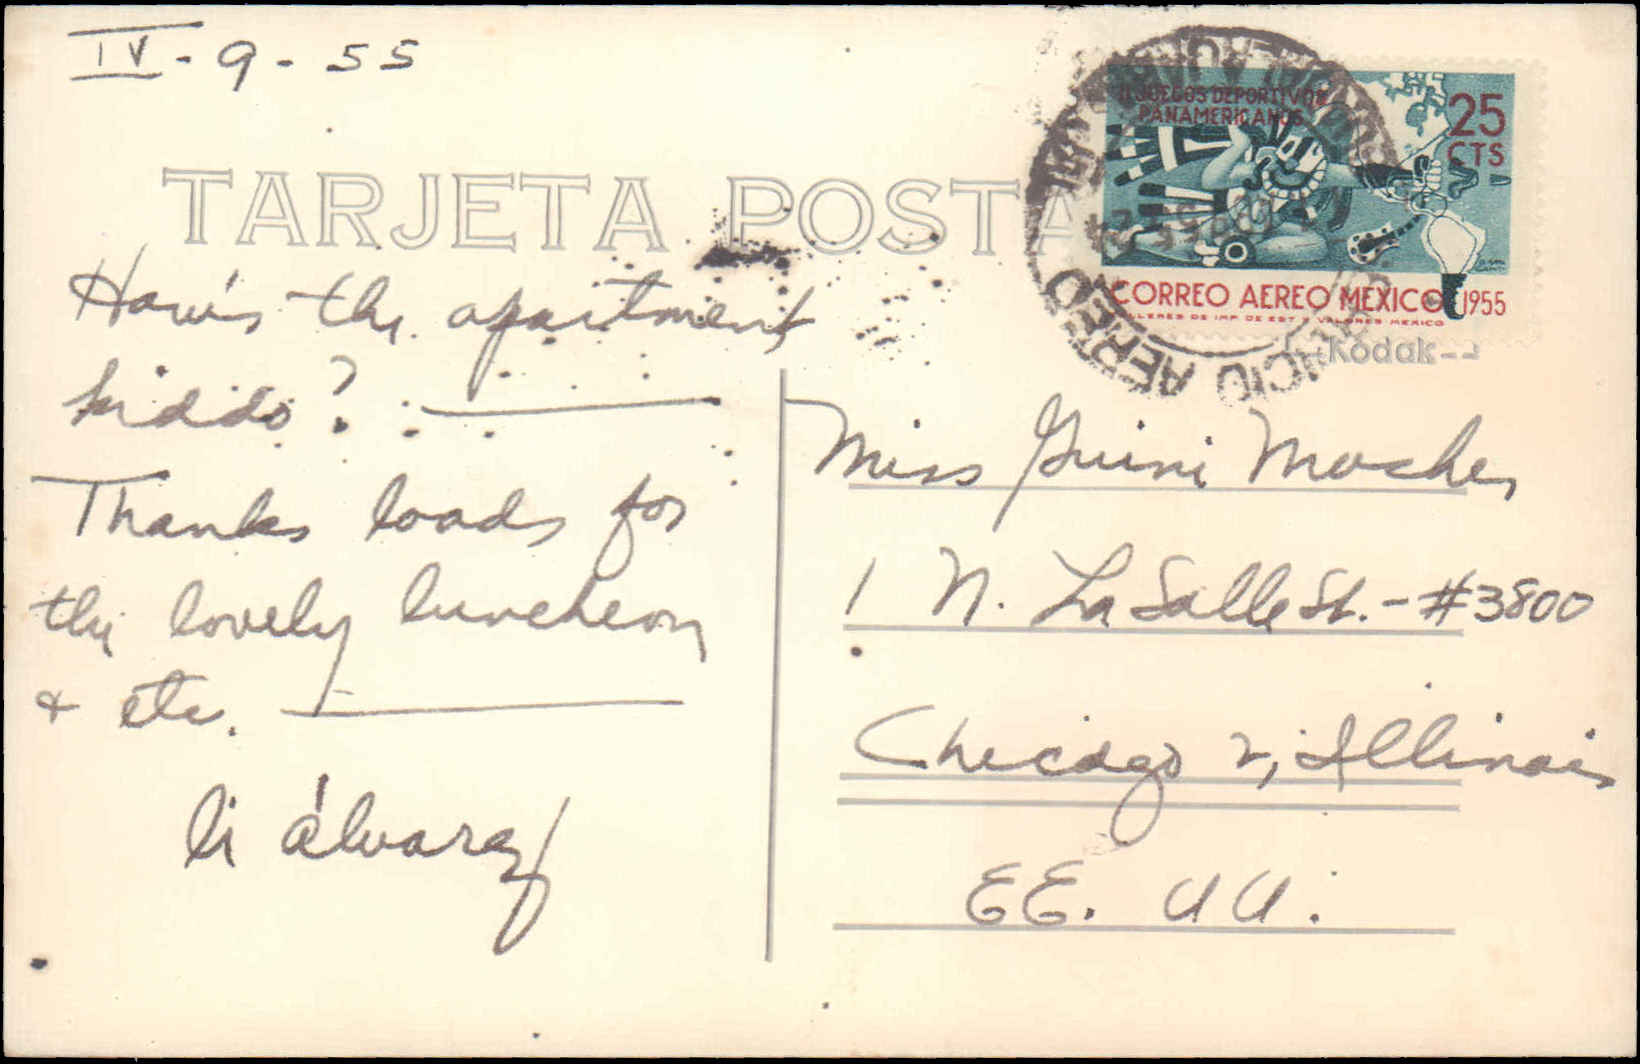 IV-9-55
TARJETA POSTA
II JUEGOS DEPORTIVOS
PANAMERICANOS
25
CTS
CORREO AEREO MEXICO 1955
TALLERES DE IMP. DE EST. Y VALORES MEXICO
AEREO
Kodak
How's the apartment
kiddo?
Thanks loads for
the lovely luncheon
& etc.
li álvarez
Miss Guini Mosher
1 N. LaSalle St. - #3800
Chicago 2, Illinois
EE. UU.